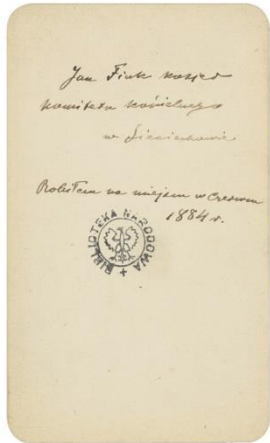 Jan Fiuk
komitetu kościelnego
w
Robiłem na miejscu w Czerwcu
1884 r.
BIBLIOTEKA NARODOWA